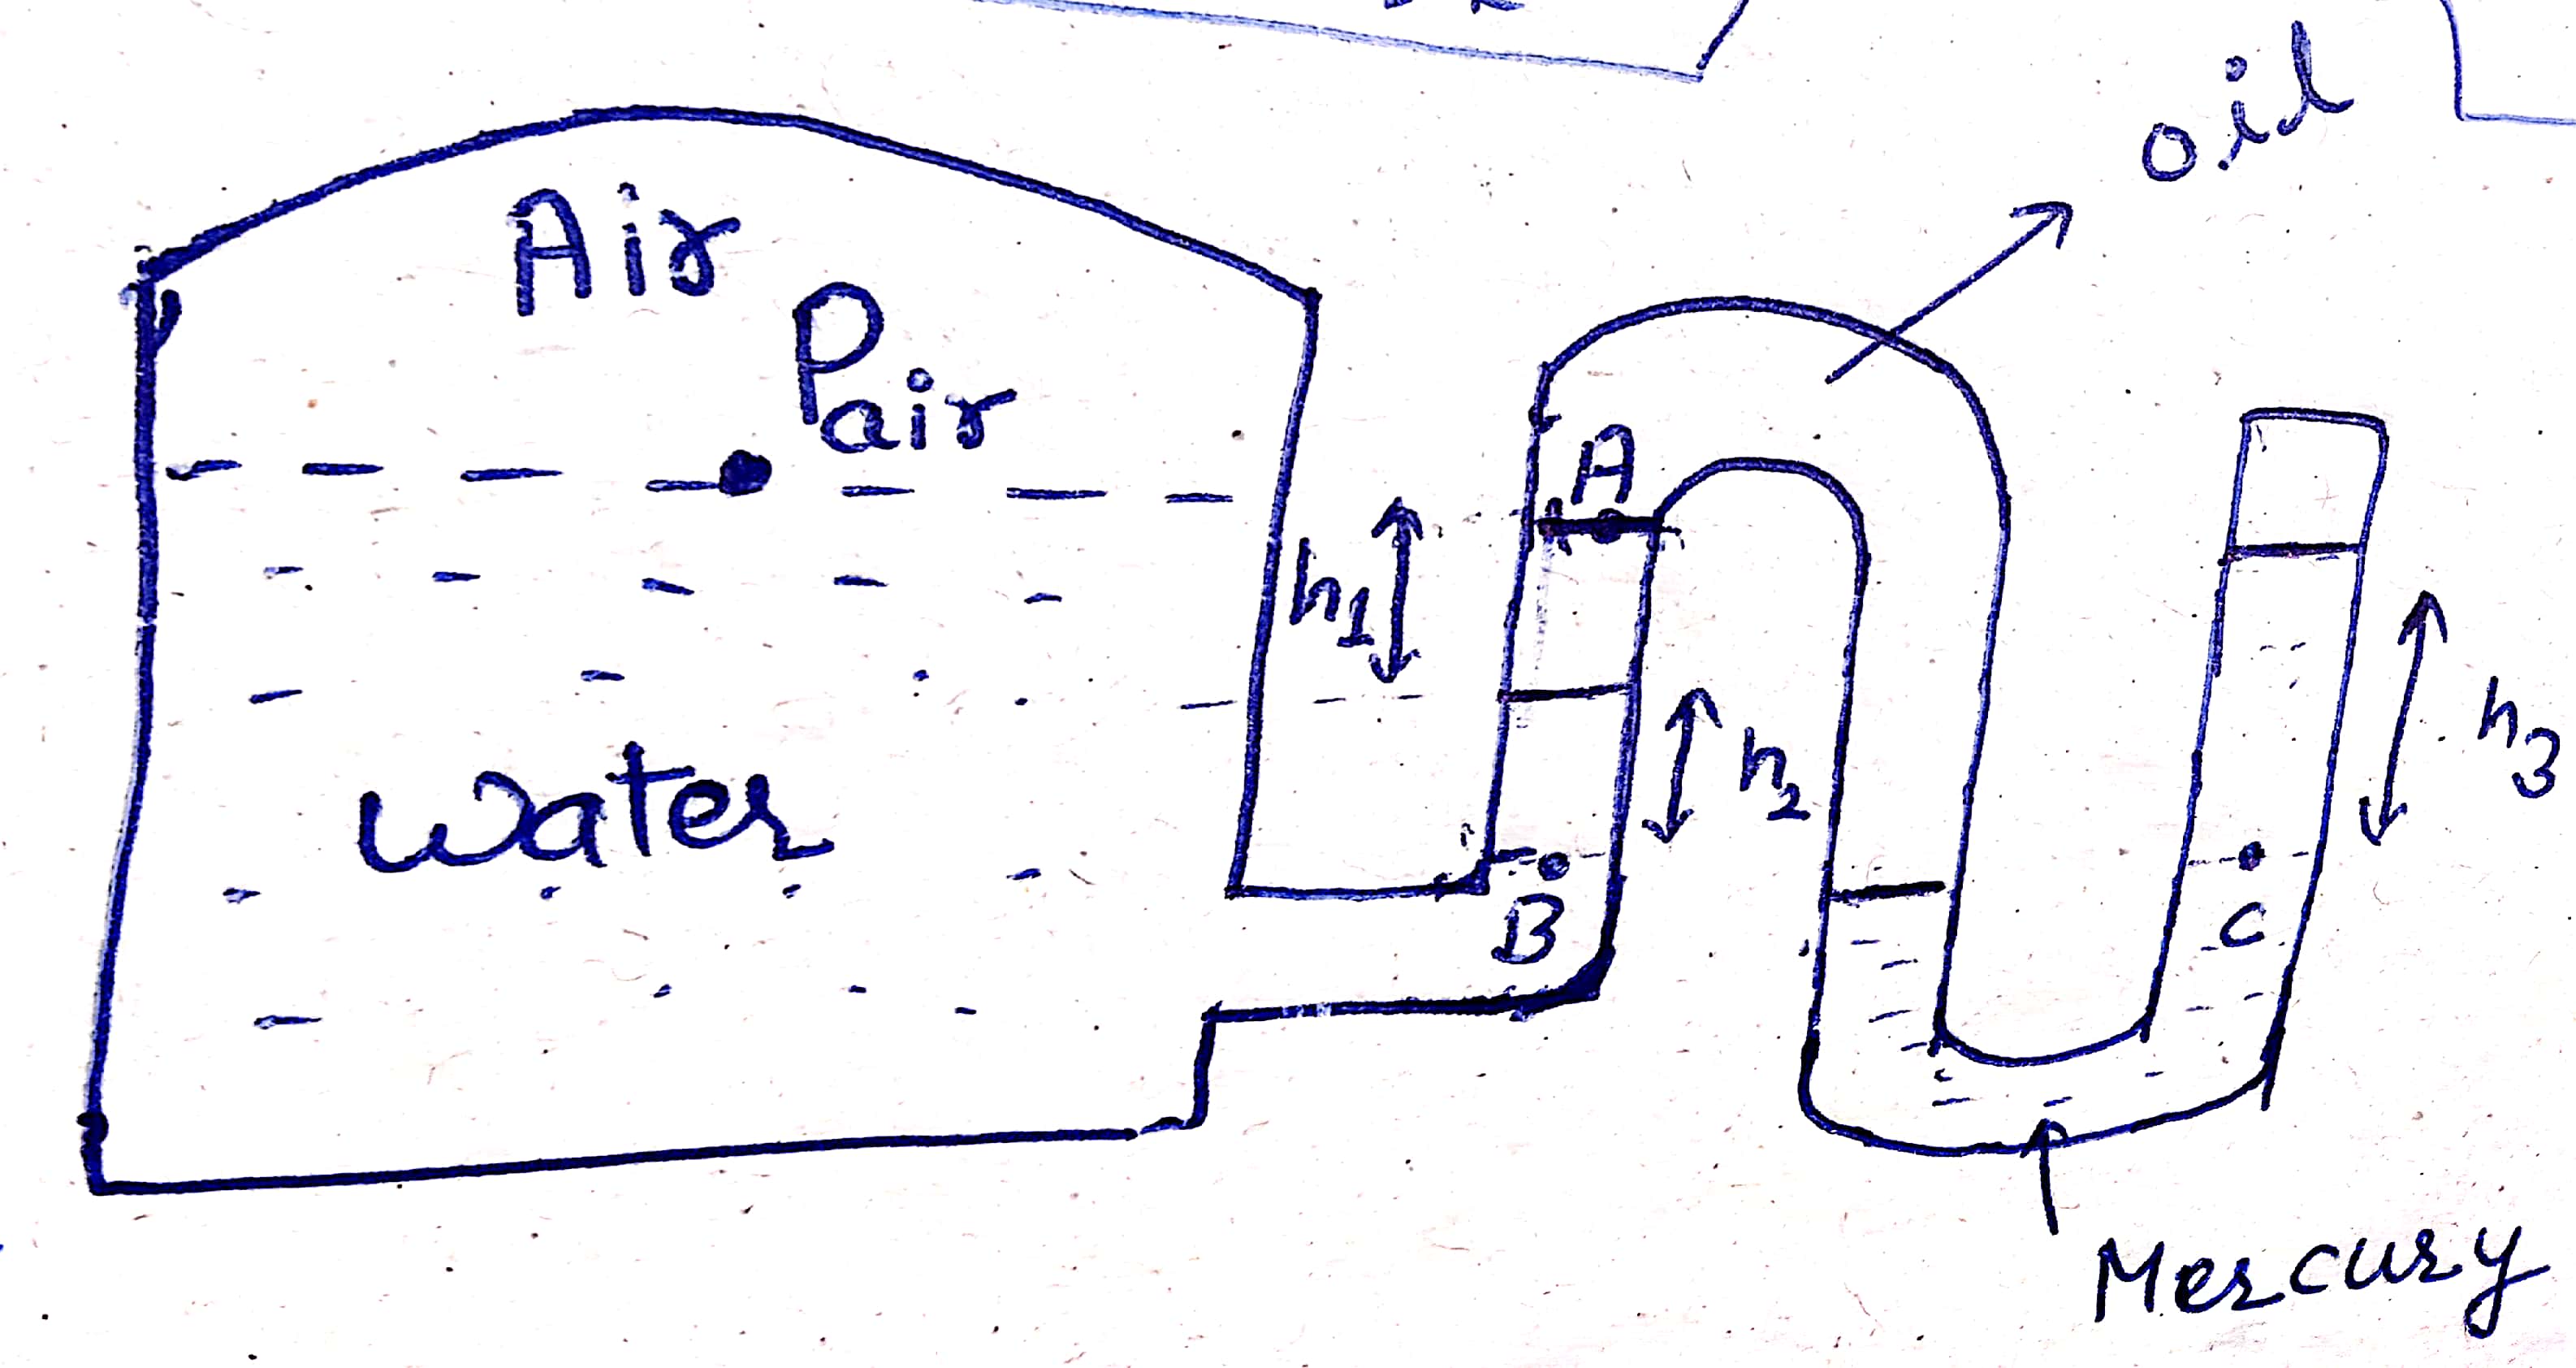 oil
Air
Pair
A
h1
h2
h3
water
B
C
Mercury